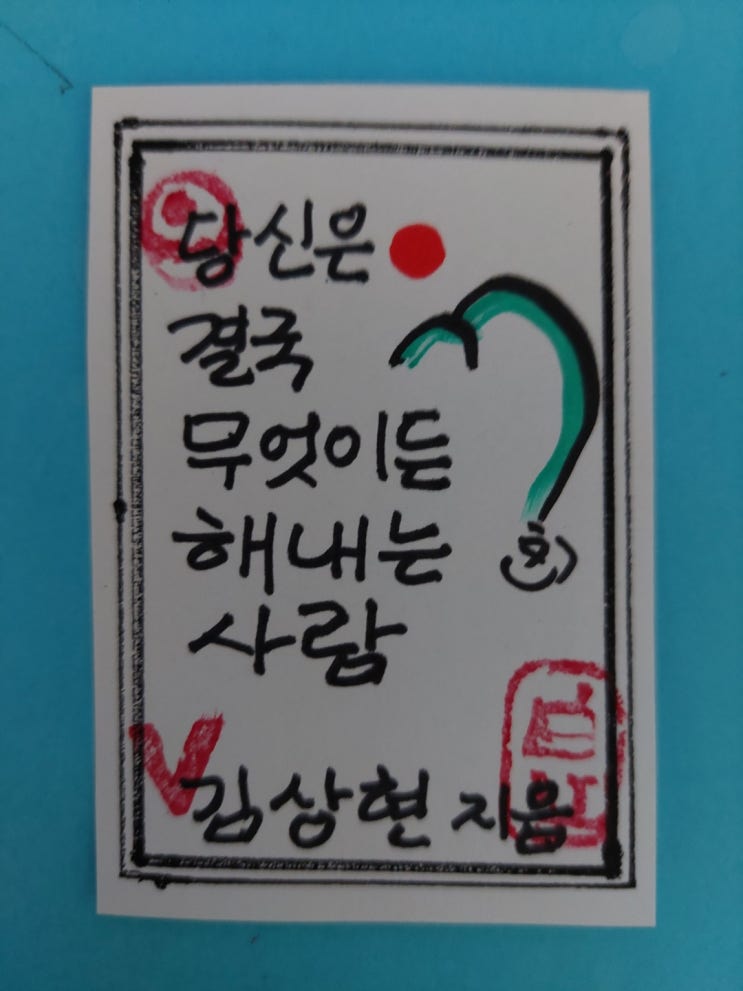 당신은
결국
무엇이든
해내는
사람
김상현 지음